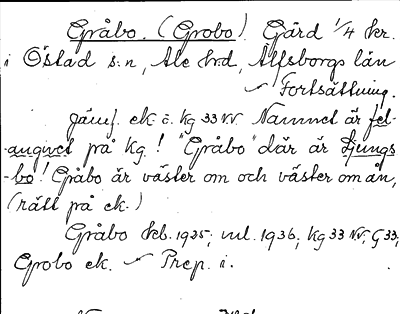 Gråbo. (Grobo) Gård 1/4 kr.
i Östad s:n, Ale hrd, Älfsborgs län
Fortsättning.
Jämf. ek. o. kg 33 NV. Namnet är fel-
-angivet på kg! "Gråbo" där är Ljungs
-bo! Gråbo är väster om och väster om ån,
(rätt på ek.)
Gråbo jrb. 1935; vul. 1936; kg 33 NV; G 33;
Grobo ek. Prep. i.